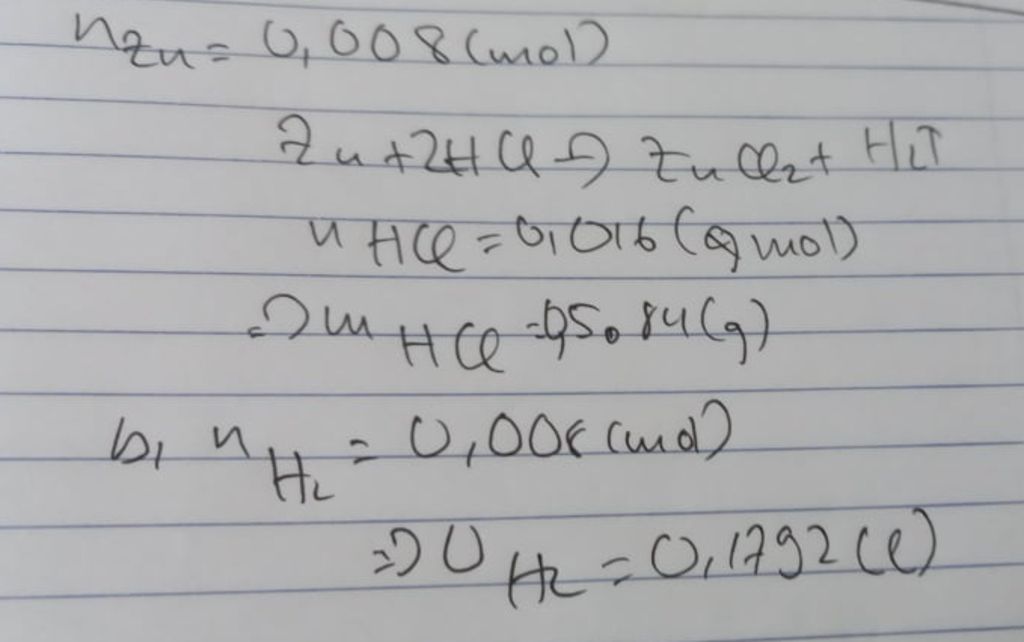 nZn = 0,008 (mol)
Zn + 2HCl → ZnCl2 + H2↑
nHCl = 0,016 (mol)
=> mHCl = 0,584 (g)
b, nH2 = 0,008 (mol)
=> VH2 = 0,1792 (l)